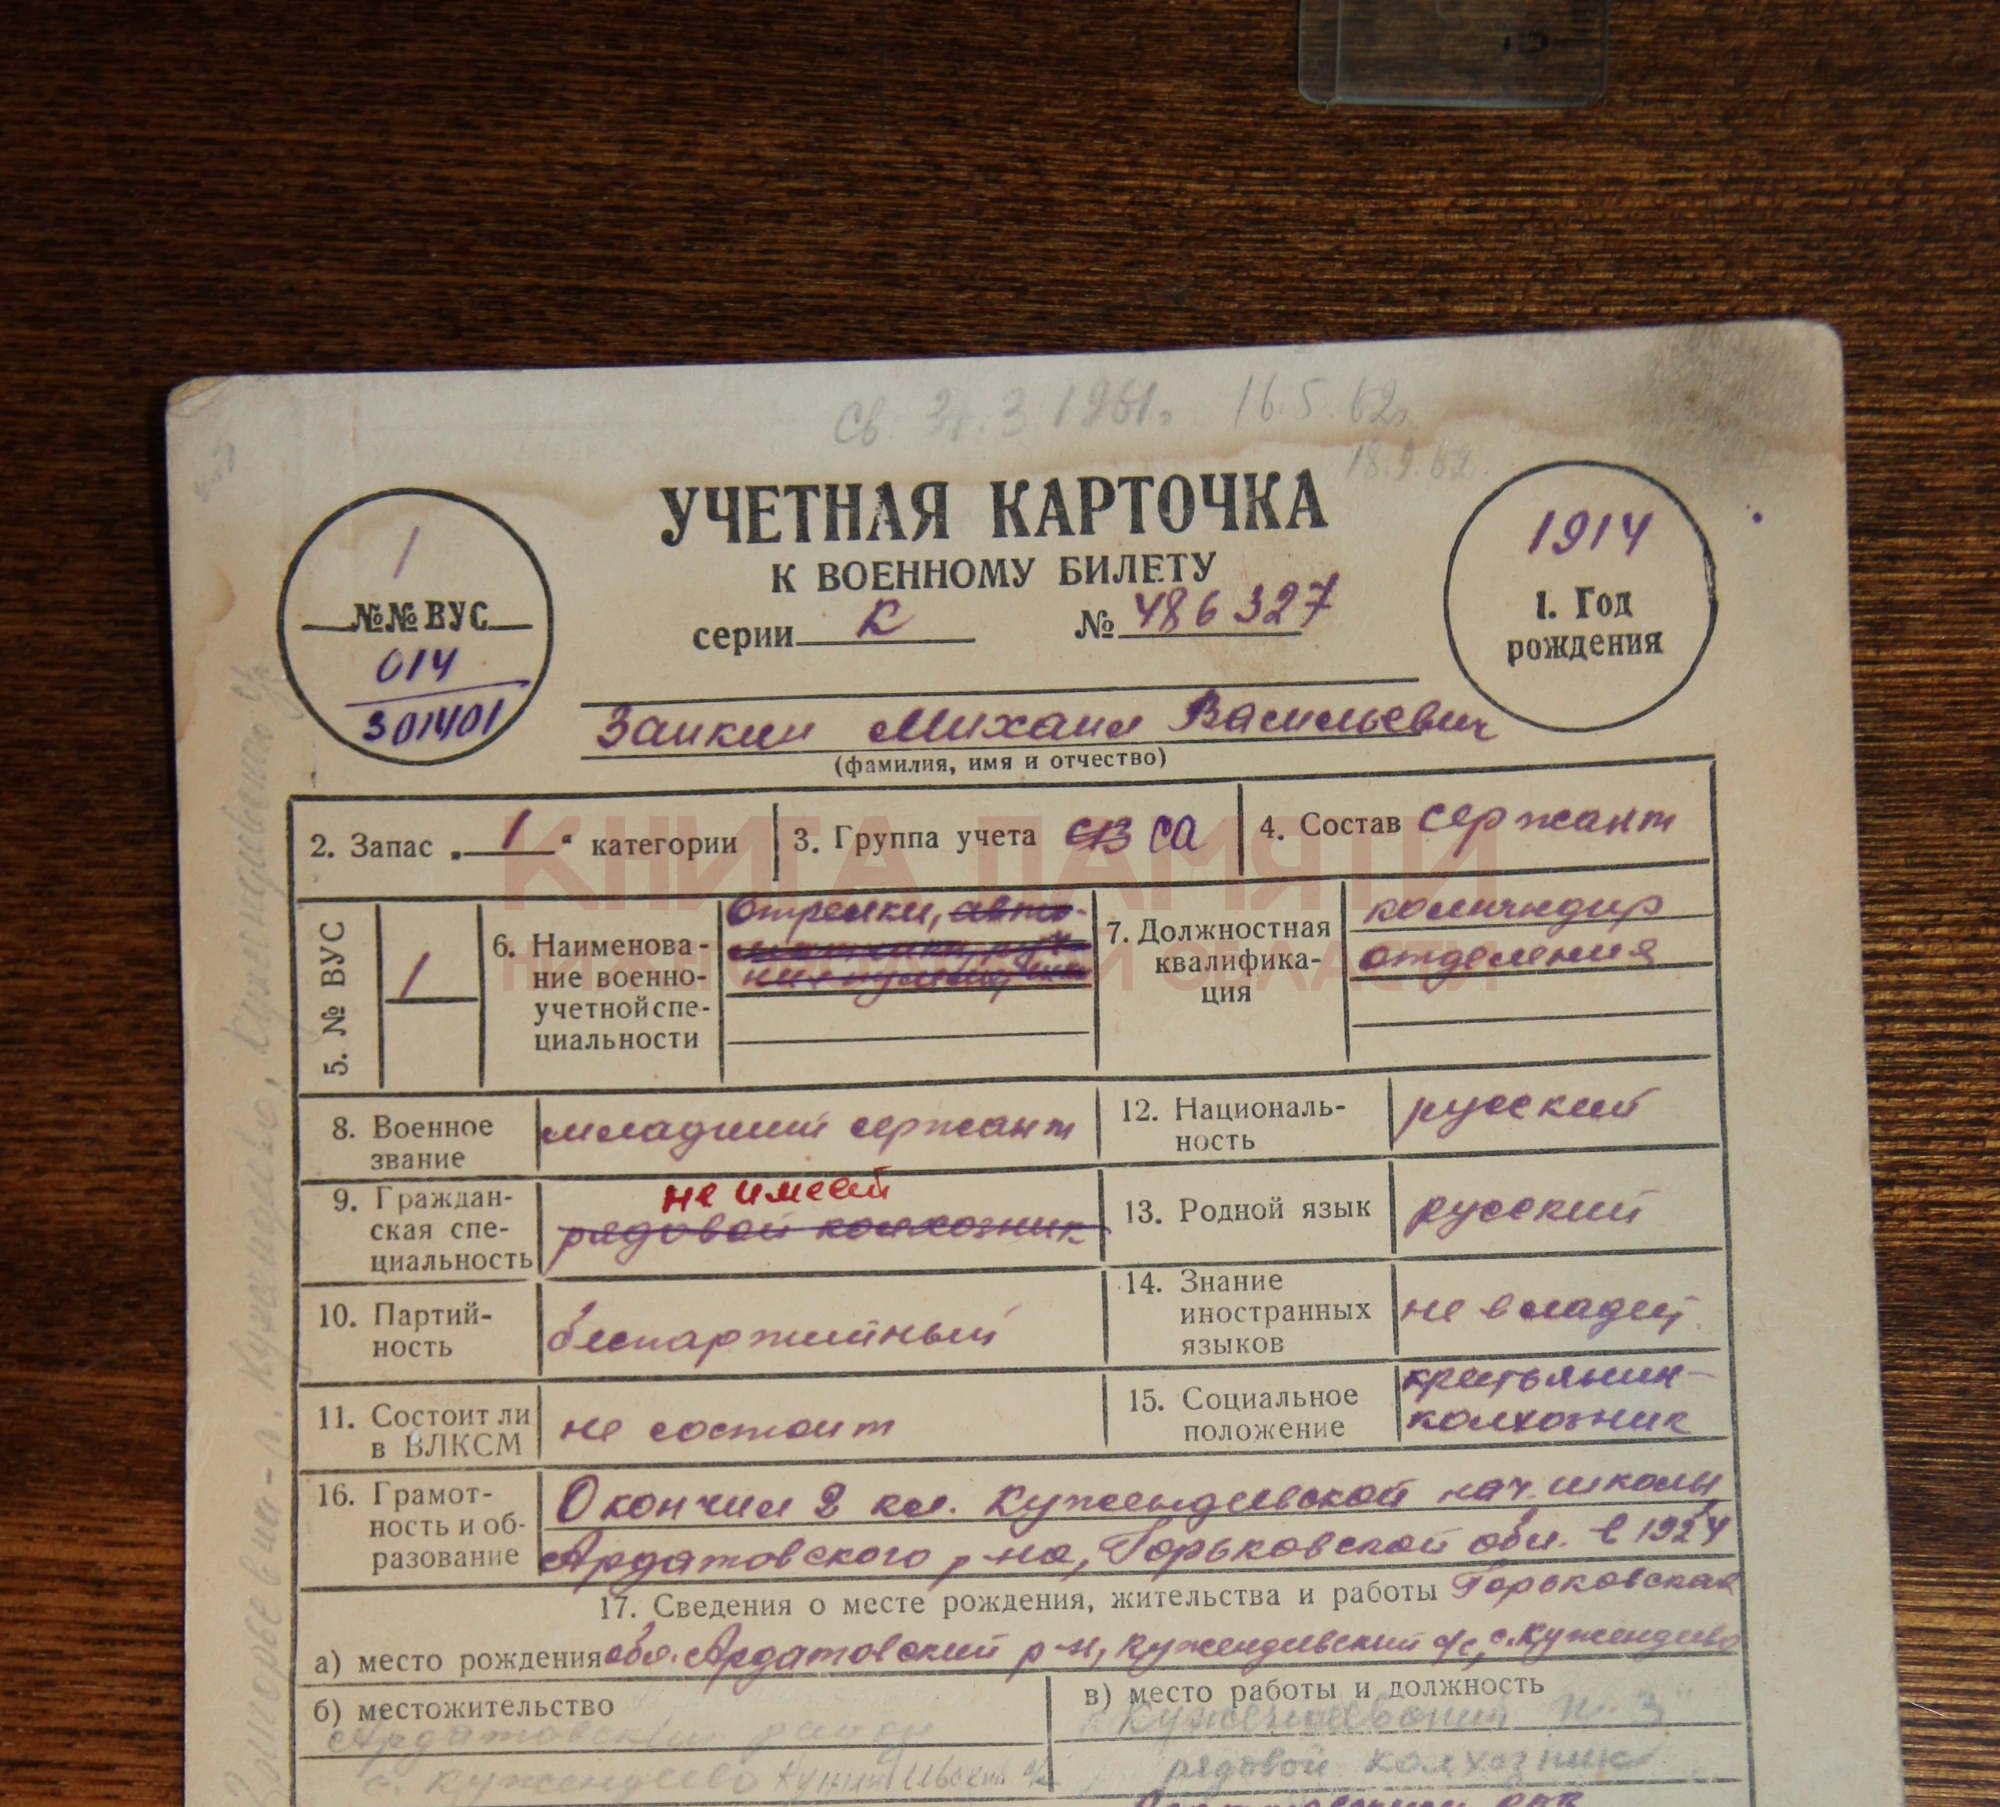 св. 3г. 3. 1961г. 16.5.62г.
18.9.62.
УЧЕТНАЯ КАРТОЧКА
К ВОЕННОМУ БИЛЕТУ
серии К № 486327
1
№№ ВУС
014
301401
1914
1. Год
рождения
Заикин Михаил Васильевич
(фамилия, имя и отчество)
2. Запас „ 1 “ категории
3. Группа учета СВ СА
4. Состав сержант
5. № ВУС
1
6. Наименова-
ние военно-
учетной спе-
циальности
Стрелки, авто-
7. Должностная
квалифика-
ция
командир
отделения
8. Военное
звание
младший сержант
12. Националь-
ность
русский
9. Граждан-
ская спе-
циальность
не имеет
рядовой колхозник
13. Родной язык
русский
10. Партий-
ность
беспартийный
14. Знание
иностранных
языков
не владеет
11. Состоит ли
в ВЛКСМ
не состоит
15. Социальное
положение
крестьянин-
колхозник
16. Грамот-
ность и об-
разование
Окончил 2 кл. Кужендеевской нач. школы
Ардатовского р-на, Горьковской обл. в 1924
17. Сведения о месте рождения, жительства и работы Горьковская
а) место рождения обл. Ардатовский р-н, Кужендеевский с/с, с. Кужендеево
б) местожительство
Ардатовский район
с. Кужендеево
в) место работы и должность
рядовой колхозник
КНИГА ПАМЯТИ
НИЖЕГОРОДСКОЙ ОБЛАСТИ